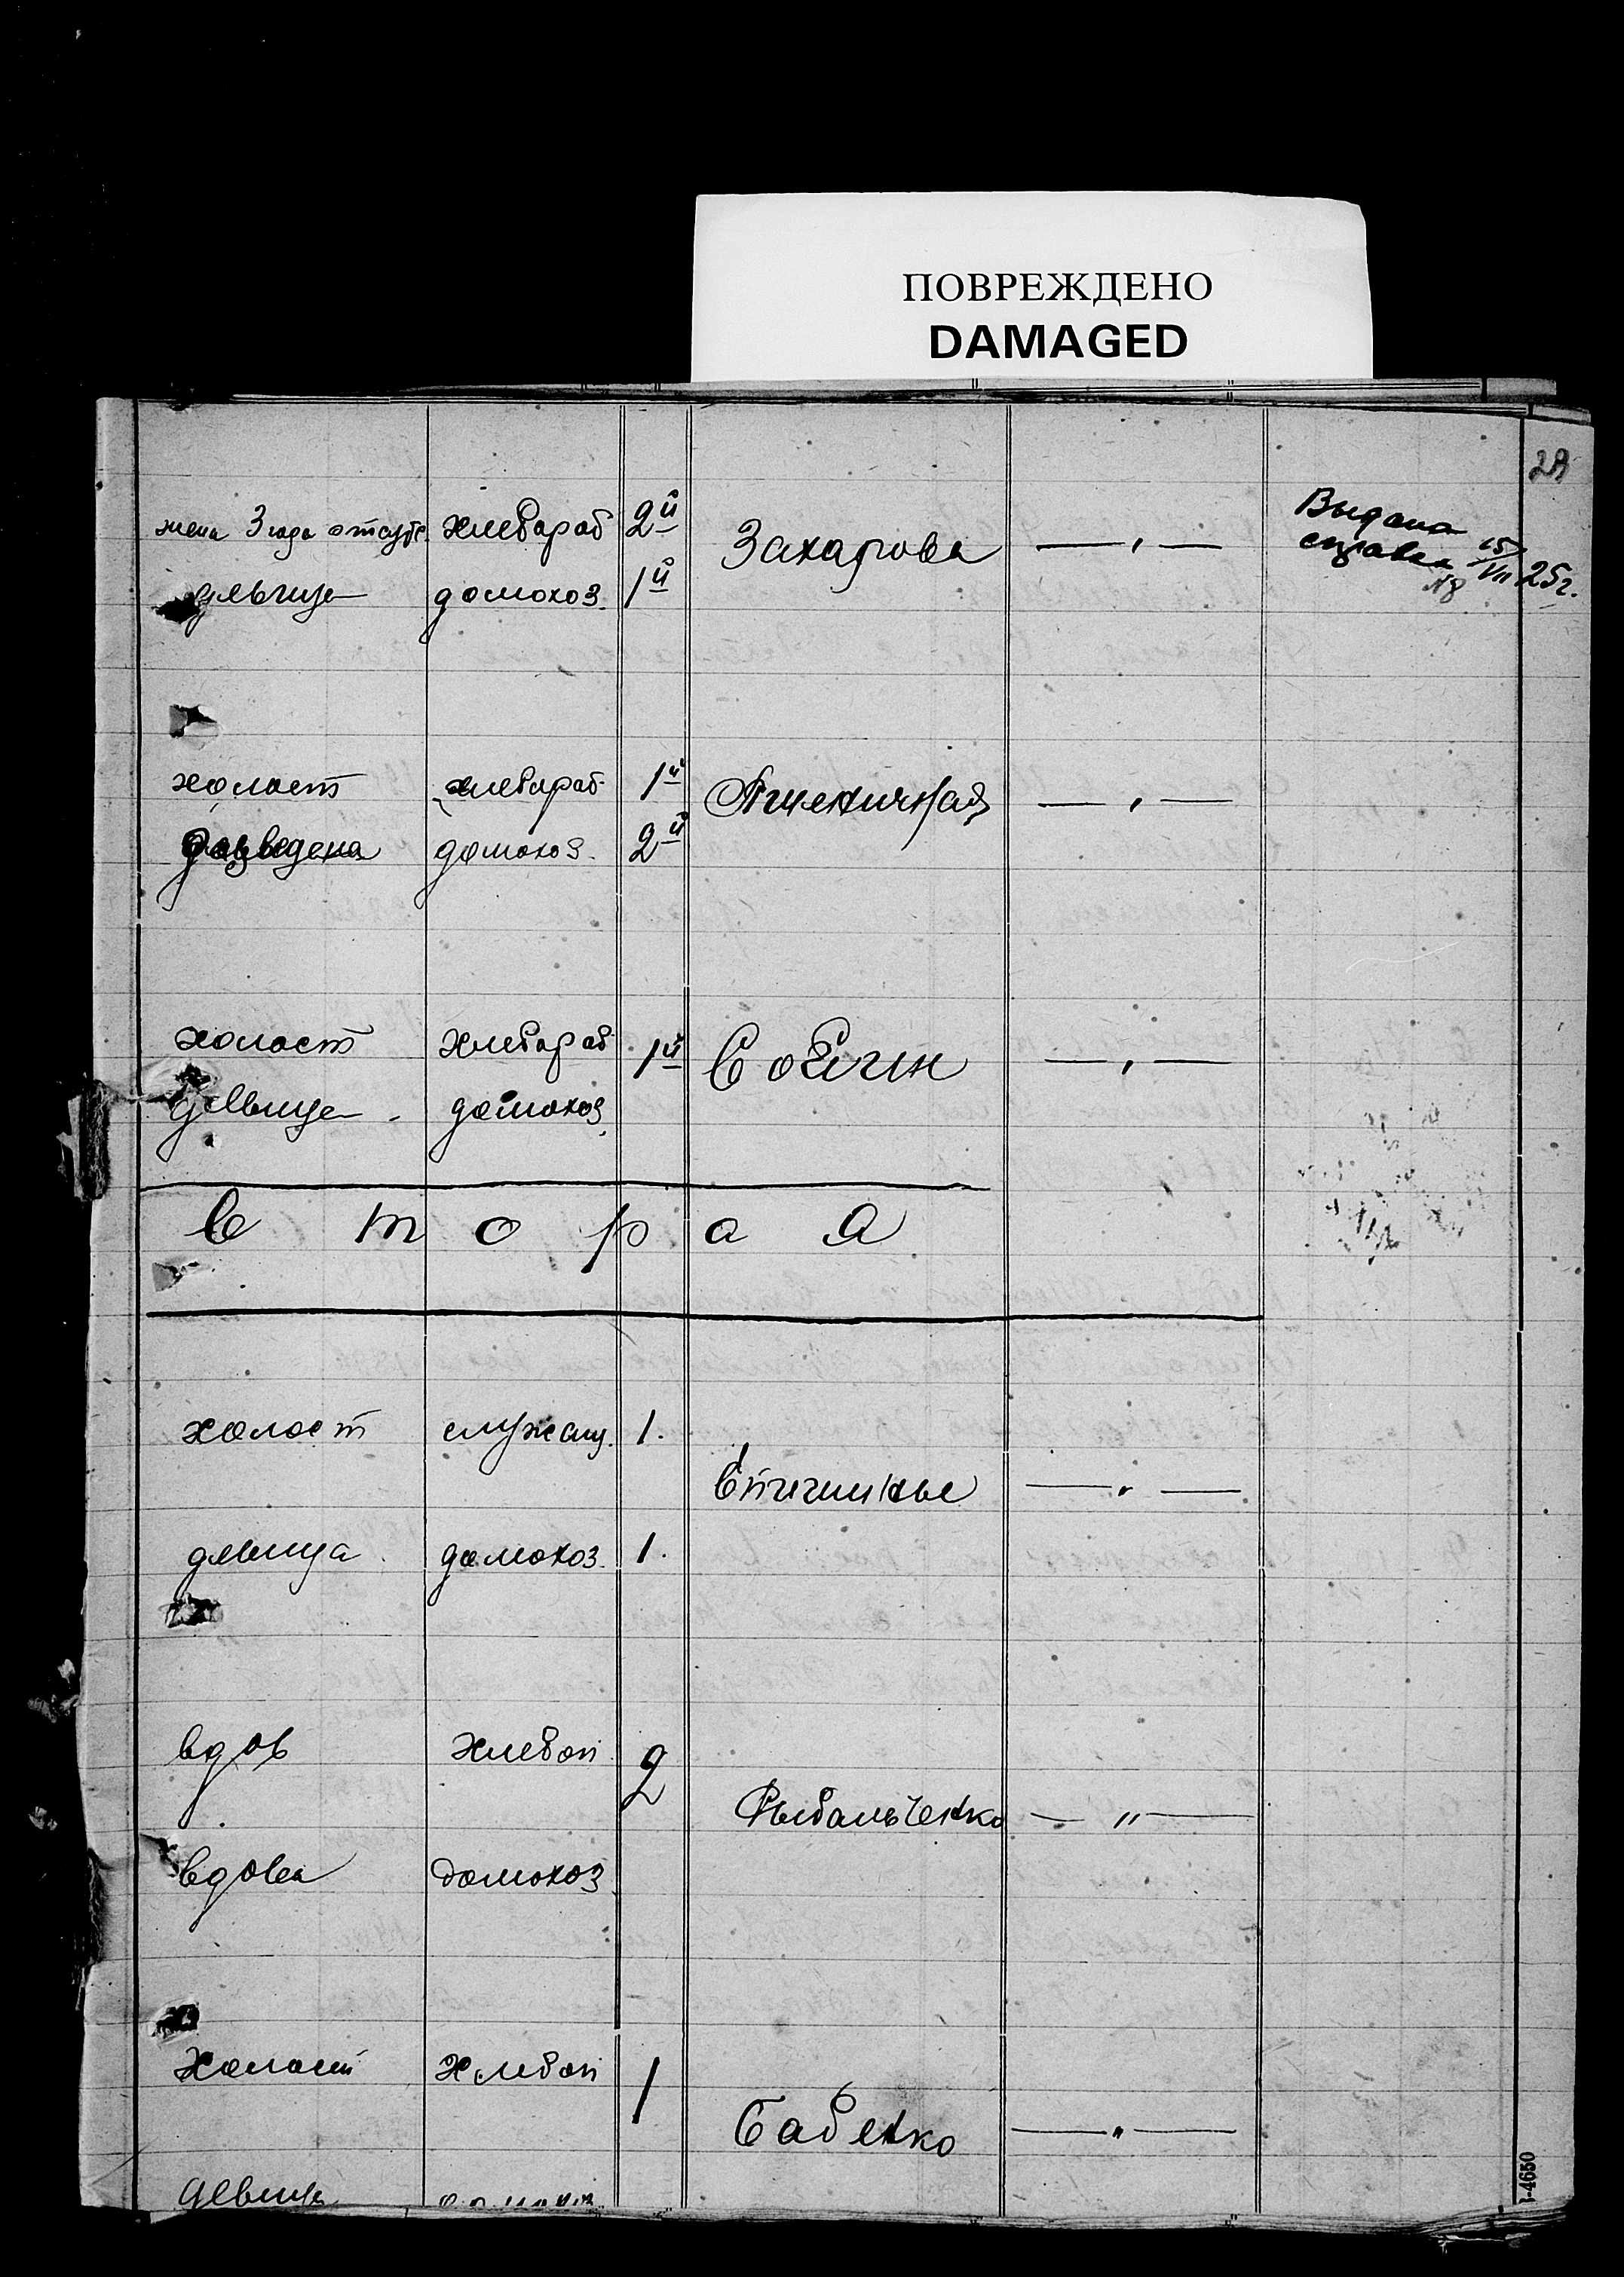 ПОВРЕЖДЕНО
DAMAGED
29
жена 3 года отсутс. хлебароб 2й
Захарова — „ —
Выдана
справка 15/VII 25г.
№8
девица домохоз. 1й
холост хлебороб 1й
Пшеничная — „ —
разведена домохоз. 2й
холост хлебароб 1й
— „ —
девица домохоз.
в т о р а я
холост служащ. 1.
— „ —
девица домохоз. 1.
вдов хлебоп 2
Рыбальченко — „ —
вдова домохоз
Холост Хлебоп 1
Бабенко — „ —
девица
-4650